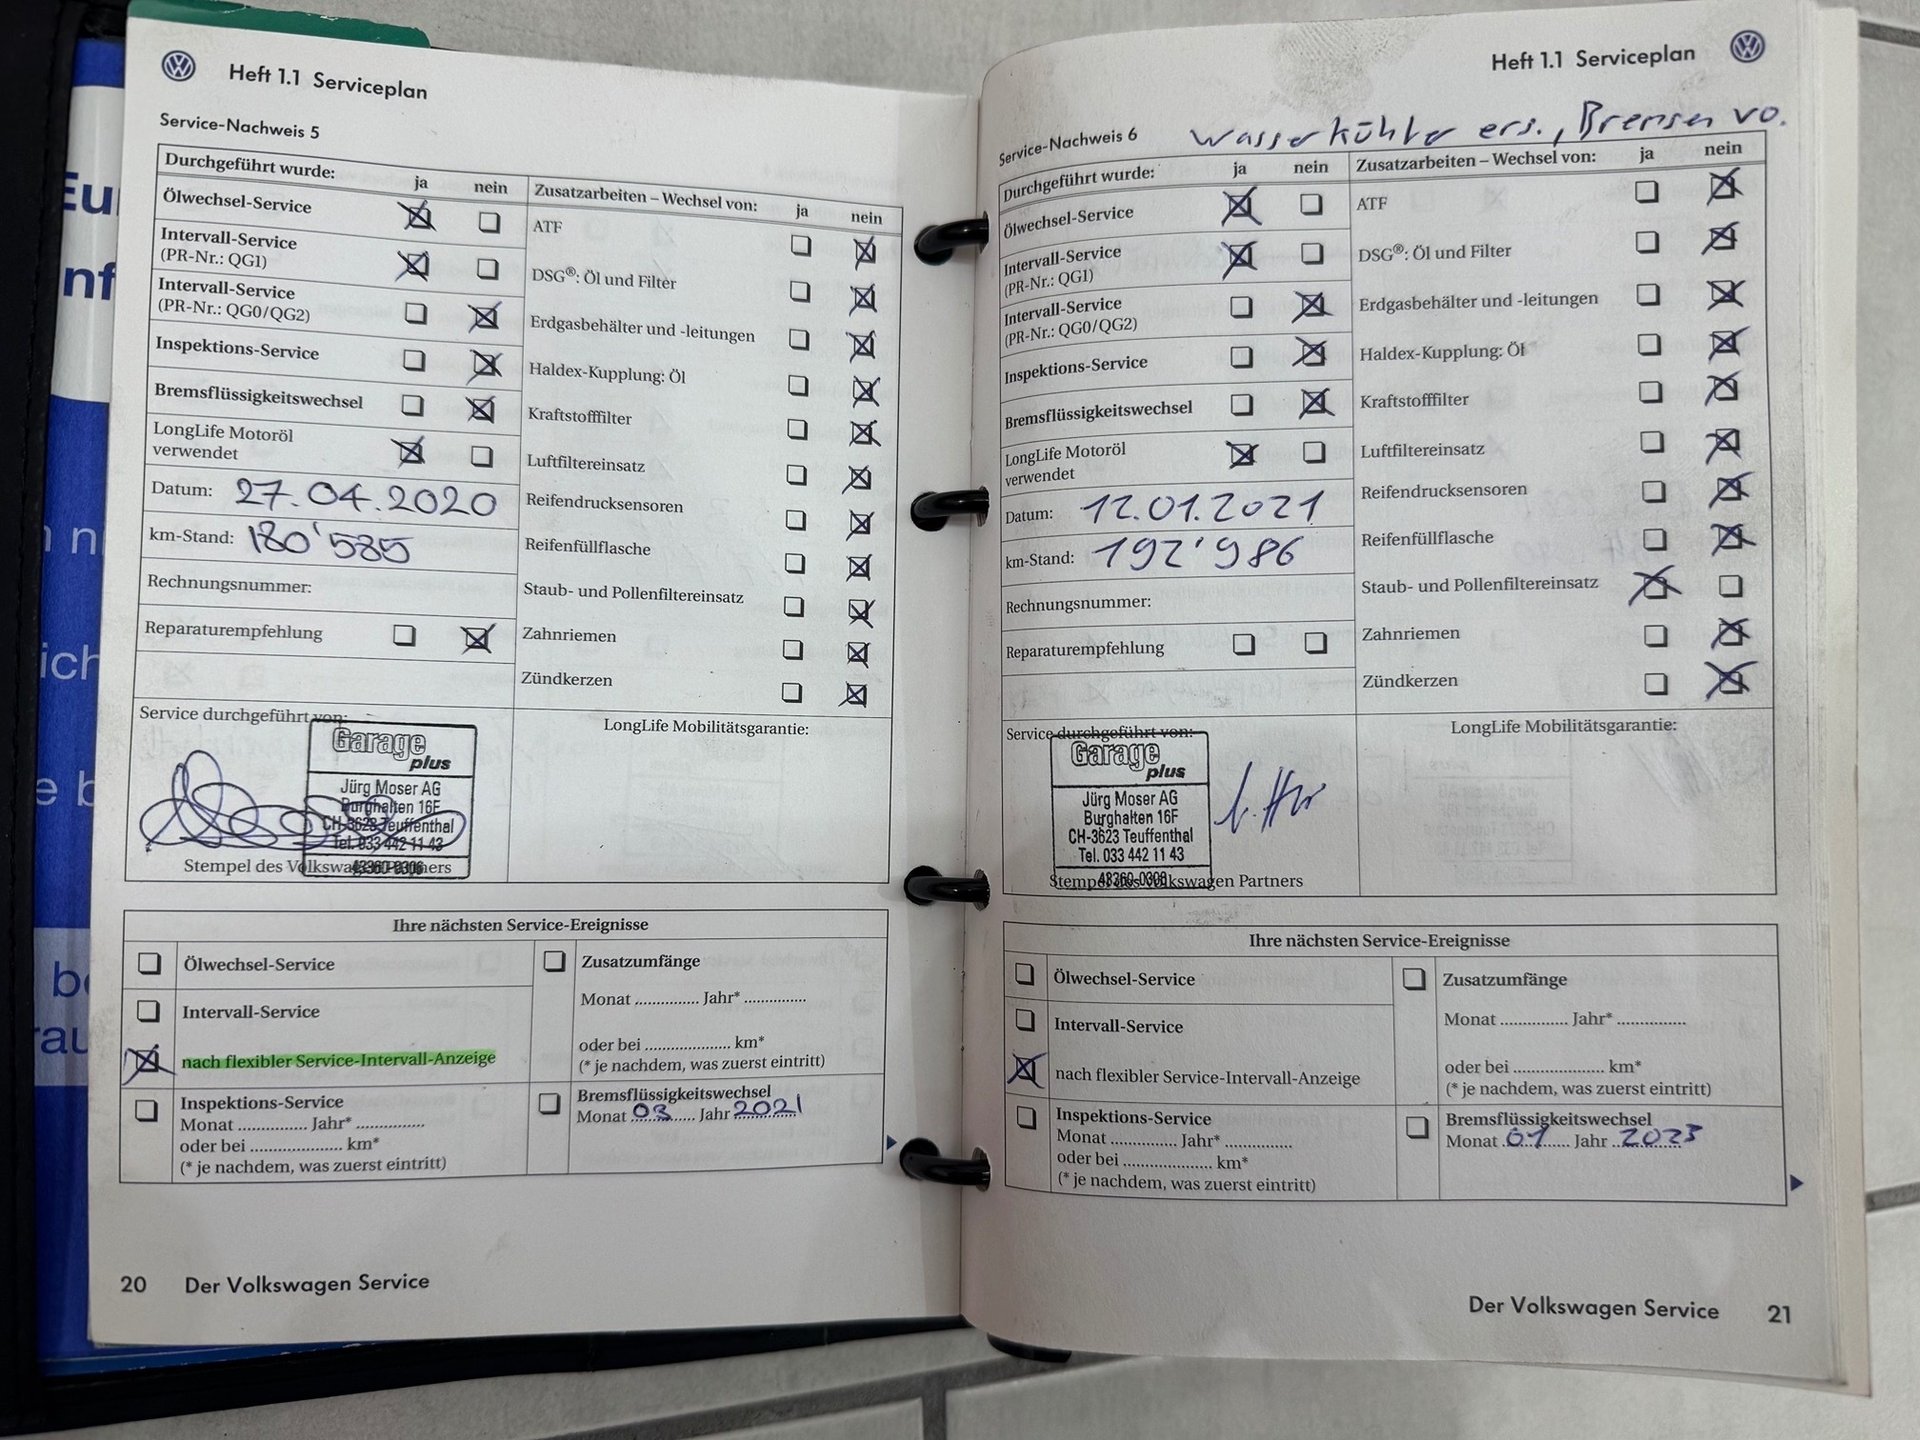 Heft 1.1 Serviceplan
Service-Nachweis 5
Durchgeführt wurde: ja nein
Ölwechsel-Service
Intervall-Service
(PR-Nr.: QG1)
Intervall-Service
(PR-Nr.: QG0/QG2)
Inspektions-Service
Bremsflüssigkeitswechsel
LongLife Motoröl
verwendet
Datum: 27.04.2020
km-Stand: 180'585
Rechnungsnummer:
Reparaturempfehlung
Zusatzarbeiten – Wechsel von: ja nein
ATF
DSG®: Öl und Filter
Erdgasbehälter und -leitungen
Haldex-Kupplung: Öl
Kraftstofffilter
Luftfiltereinsatz
Reifendrucksensoren
Reifenfüllflasche
Staub- und Pollenfiltereinsatz
Zahnriemen
Zündkerzen
Service durchgeführt von:
Garage
plus
Jürg Moser AG
Burghalten 16F
CH-3623 Teuffenthal
Tel. 033 442 11 43
43360-0306
Stempel des Volkswagen Partners
LongLife Mobilitätsgarantie:
Ihre nächsten Service-Ereignisse
Ölwechsel-Service
Intervall-Service
nach flexibler Service-Intervall-Anzeige
Inspektions-Service
Monat ............... Jahr* ...............
oder bei .................... km*
(* je nachdem, was zuerst eintritt)
Zusatzumfänge
Monat ............... Jahr* ...............
oder bei .................... km*
(* je nachdem, was zuerst eintritt)
Bremsflüssigkeitswechsel
Monat 03 Jahr 2021
20 Der Volkswagen Service
Heft 1.1 Serviceplan
Wasserkühler ers., Bremsen vo.
Service-Nachweis 6
Durchgeführt wurde: ja nein
Ölwechsel-Service
Intervall-Service
(PR-Nr.: QG1)
Intervall-Service
(PR-Nr.: QG0/QG2)
Inspektions-Service
Bremsflüssigkeitswechsel
LongLife Motoröl
verwendet
Datum: 12.01.2021
km-Stand: 192'986
Rechnungsnummer:
Reparaturempfehlung
Zusatzarbeiten – Wechsel von: ja nein
ATF
DSG®: Öl und Filter
Erdgasbehälter und -leitungen
Haldex-Kupplung: Öl
Kraftstofffilter
Luftfiltereinsatz
Reifendrucksensoren
Reifenfüllflasche
Staub- und Pollenfiltereinsatz
Zahnriemen
Zündkerzen
Service durchgeführt von:
Garage
plus
Jürg Moser AG
Burghalten 16F
CH-3623 Teuffenthal
Tel. 033 442 11 43
43360-0306
Stempel des Volkswagen Partners
LongLife Mobilitätsgarantie:
Ihre nächsten Service-Ereignisse
Ölwechsel-Service
Intervall-Service
nach flexibler Service-Intervall-Anzeige
Inspektions-Service
Monat ............... Jahr* ...............
oder bei .................... km*
(* je nachdem, was zuerst eintritt)
Zusatzumfänge
Monat ............... Jahr* ...............
oder bei .................... km*
(* je nachdem, was zuerst eintritt)
Bremsflüssigkeitswechsel
Monat 01 Jahr 2023
Der Volkswagen Service 21